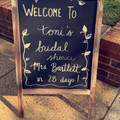 Welcome to
toni's
bridal
shower
Mrs Bartlett
in 28 days!